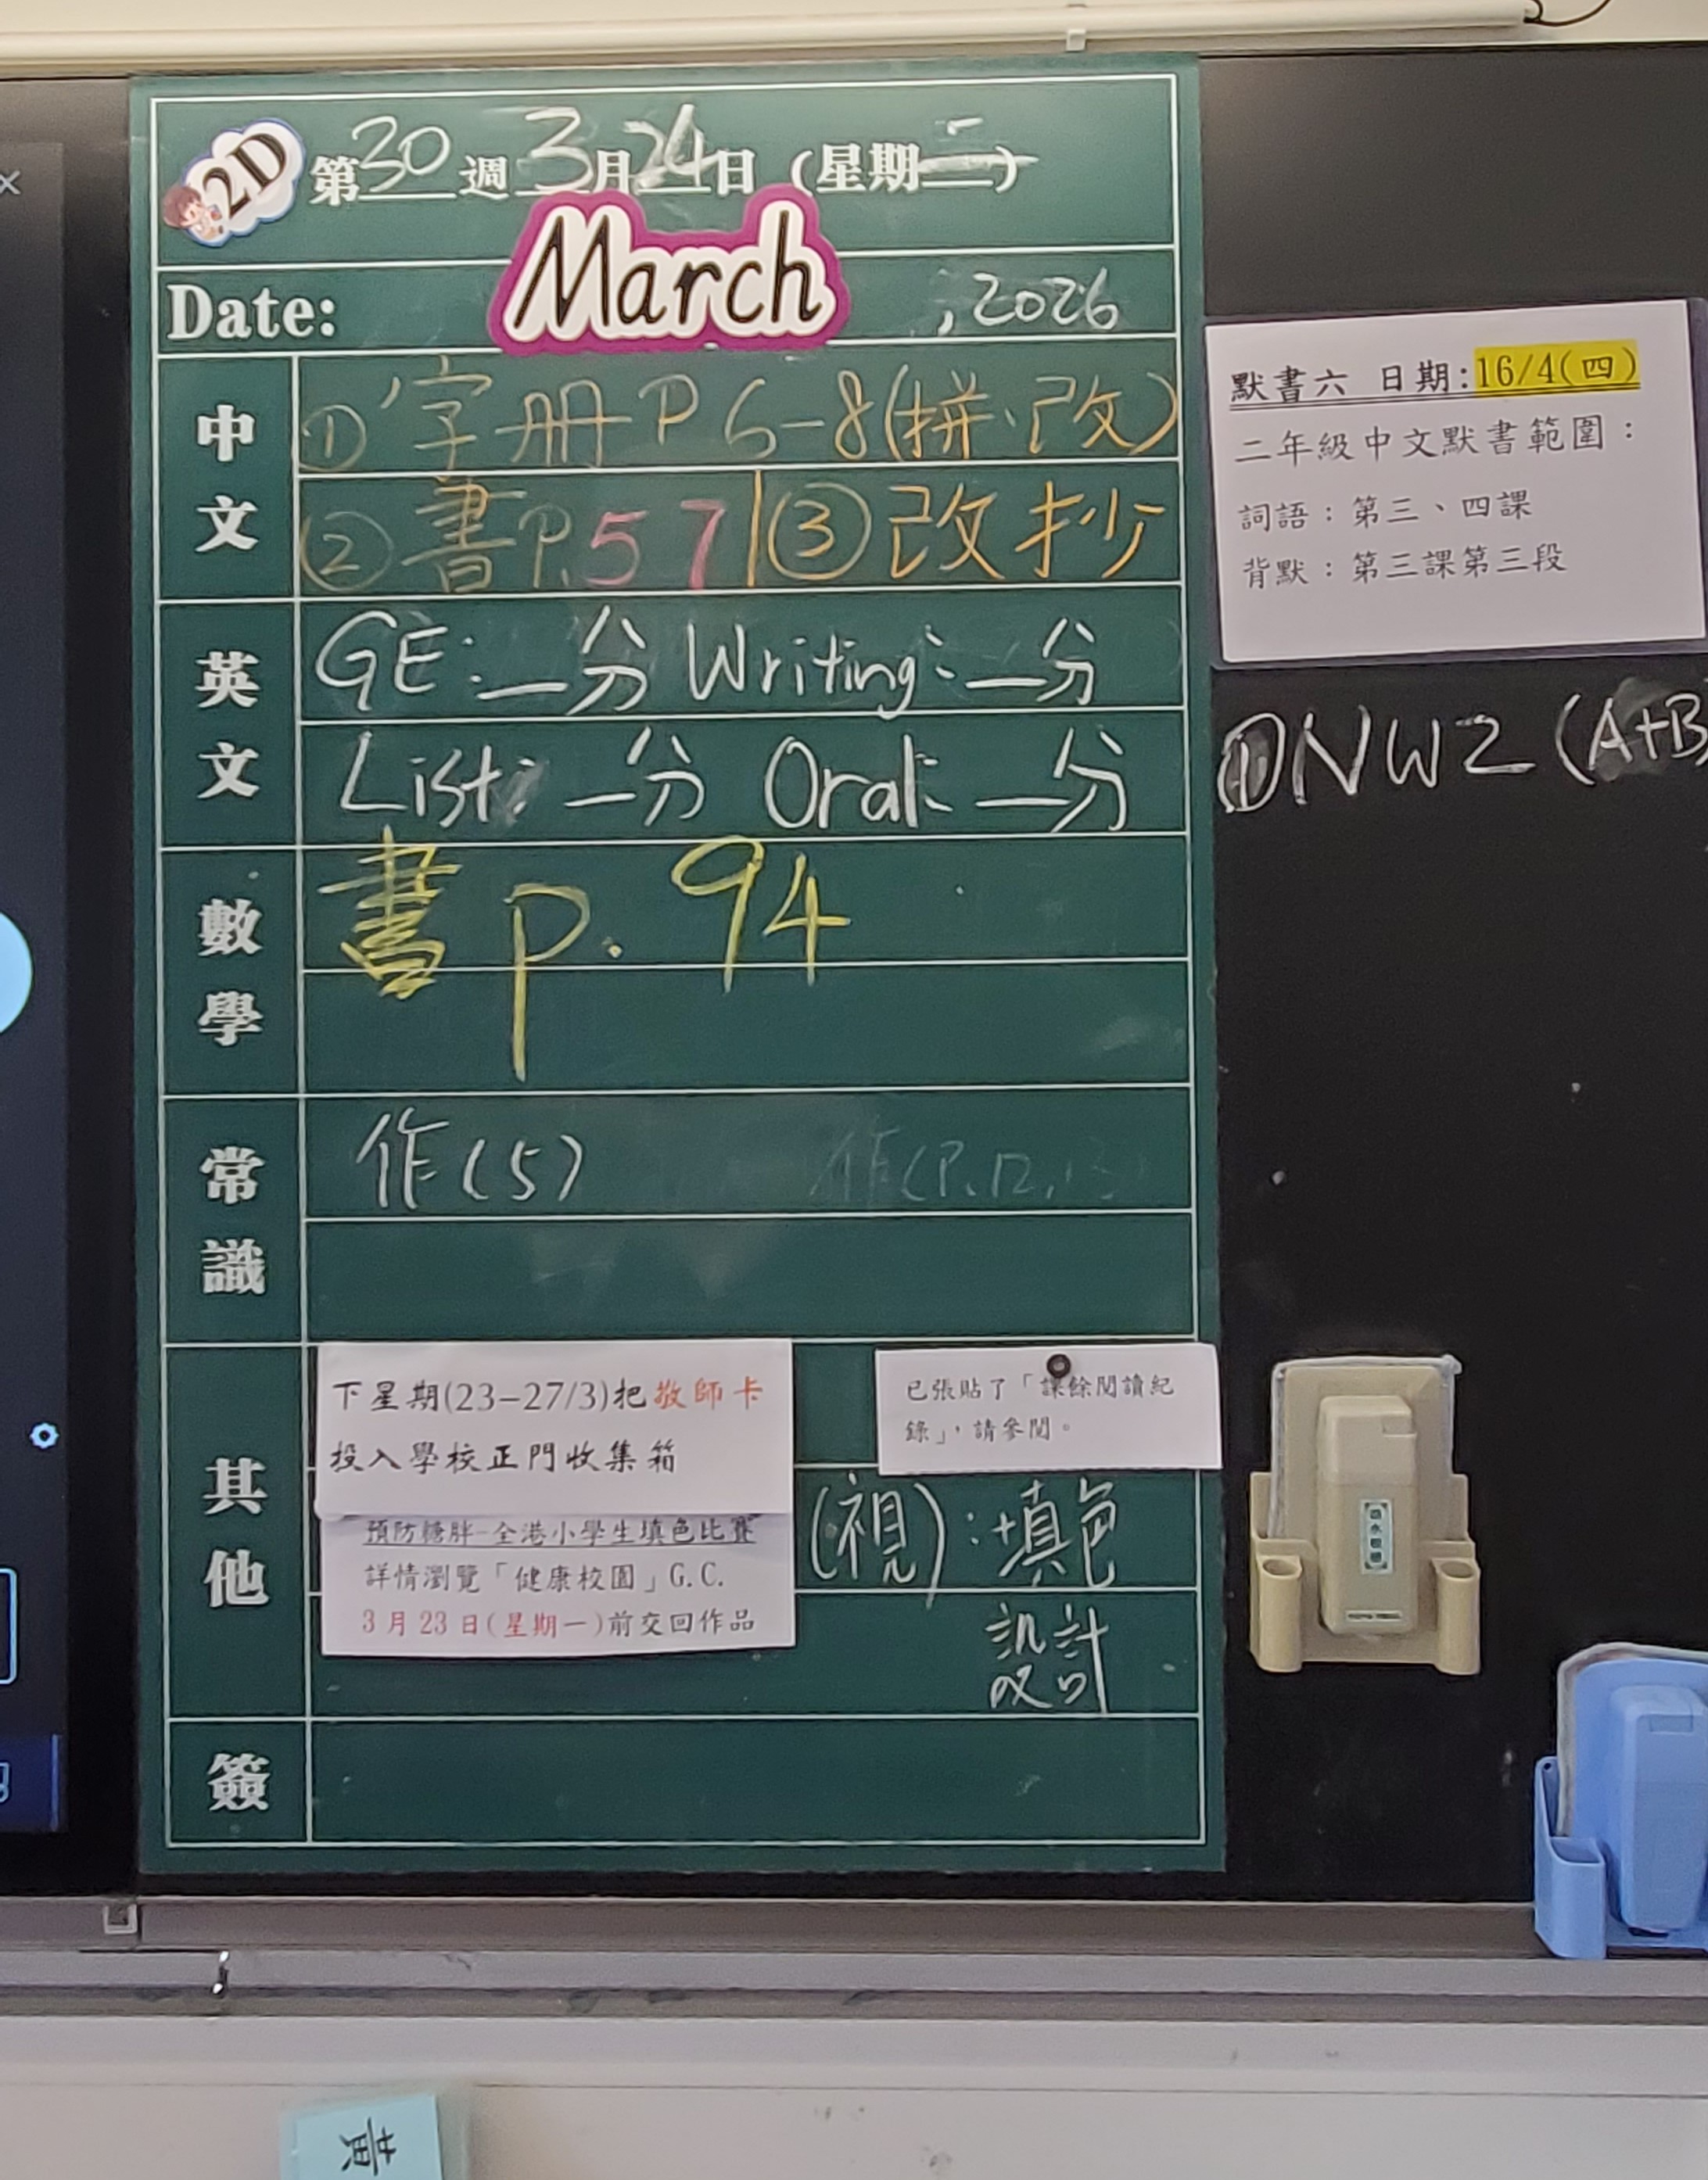 2D 第30週3月24日(星期二)
March
Date: , 2026
中文
①字册P6-8(拼、改)
②書P.57|③改抄
英文
GE:__分 Writing:__分
List:__分 Oral:__分
數學
書 p. 94
常識
作(5)
作(P.12,
其他
下星期(23-27/3)把敬師卡
投入學校正門收集箱
預防糖胖-全港小學生填色比賽
詳情瀏覽「健康校園」G.C.
3月23日(星期一)前交回作品
已張貼了「課餘閱讀紀
錄」,請參閱。
(視):填色
設計
簽
默書六 日期:16/4(四)
二年級中文默書範圍:
詞語:第三、四課
背默:第三課第三段
①NW2 (A+B)
黃